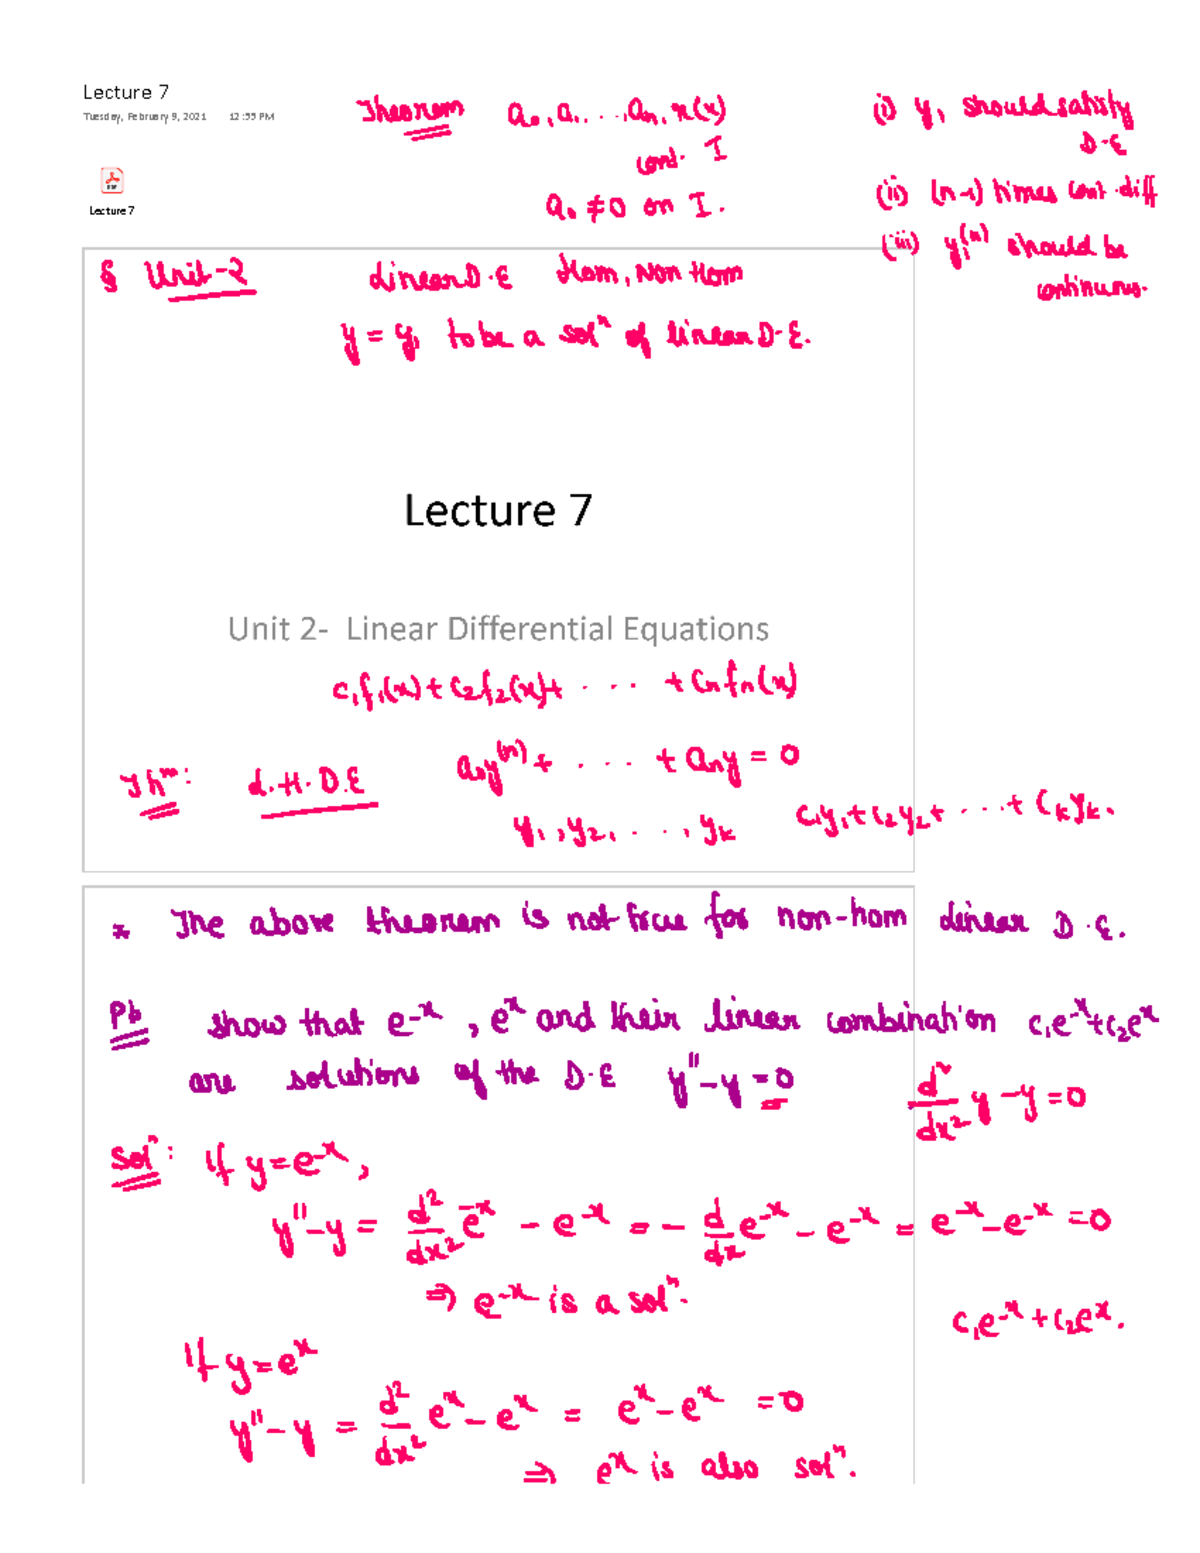 Lecture 7
Tuesday, February 9, 2021 12:55 PM
Theorem a₀, a₁ ..., aₙ, r(x)
cont. I
a₀ ≠ 0 on I.
(i) y₁ should satisfy
D·E
(ii) (n-1) times cont. diff
(iii) y₁⁽ⁿ⁾ should be
continuous.
PDF
Lecture 7
§ Unit-2 Linear D·E Hom, Non Hom
y = y₁ to be a solⁿ of linear D·E.
Lecture 7
Unit 2- Linear Differential Equations
c₁f₁(x) + c₂f₂(x) + ... + cₙfₙ(x)
Thᵐ: L.H.D.E a₀y⁽ⁿ⁾ + ... + aₙy = 0
y₁, y₂, ..., yₖ c₁y₁ + c₂y₂ + ... + cₖyₖ.
* The above theorem is not true for non-hom linear D·E.
Pb show that e⁻ˣ, eˣ and their linear combination c₁e⁻ˣ+c₂eˣ
are solutions of the D·E y''-y=0
d²/dx² y - y = 0
Solⁿ: If y = e⁻ˣ,
y''-y = d²/dx² e⁻ˣ - e⁻ˣ = - d/dx e⁻ˣ - e⁻ˣ = e⁻ˣ - e⁻ˣ = 0
⇒ e⁻ˣ is a solⁿ.
c₁e⁻ˣ + c₂eˣ.
If y = eˣ
y''-y = d²/dx² eˣ - eˣ = eˣ - eˣ = 0
⇒ eˣ is also solⁿ.